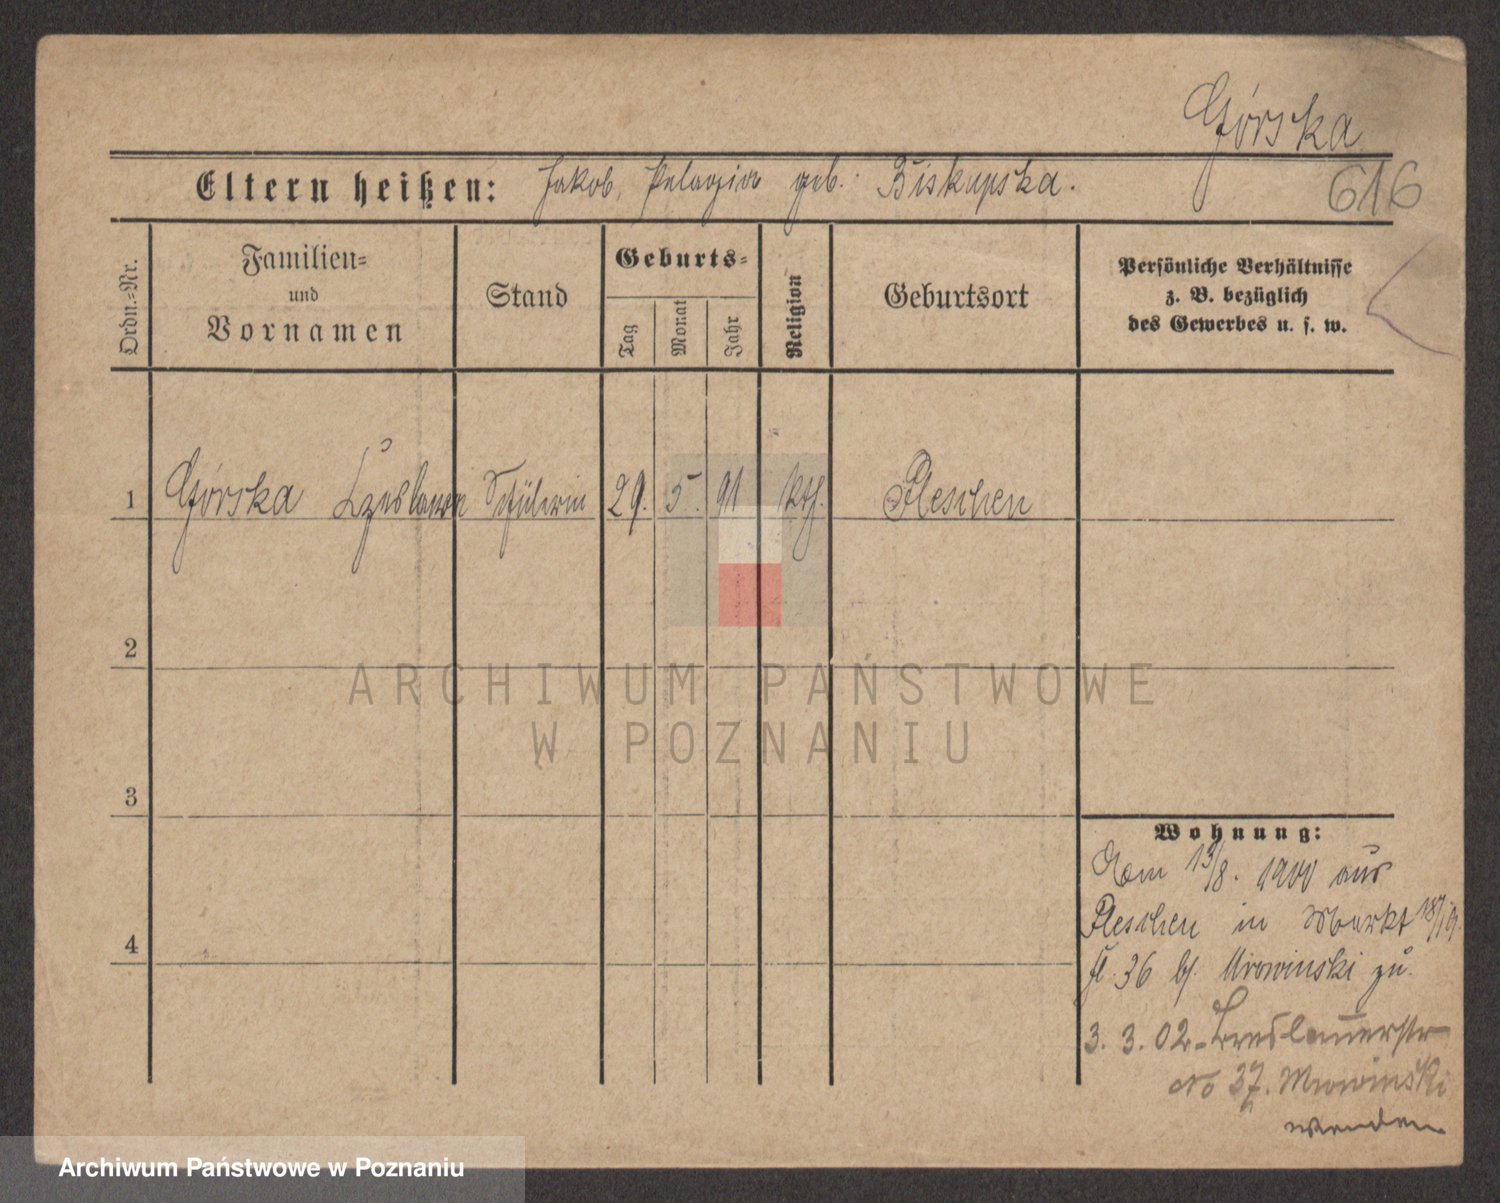 Górska
616
Eltern heißen: Jakob, Pelagia geb. Biskupska.
Ordn.-Nr.
Familien- und Vornamen
Stand
Geburts-
Tag
Monat
Jahr
Religion
Geburtsort
Persönliche Verhältnisse
z. B. bezüglich
des Gewerbes u. s. w.
1 Górska Czeslawa Schülerin 29. 5. 91 kth. Pleschen
2
3
4
Wohnung:
Vom 13/8. 1900 aus
Pleschen in Markt
36 bei Mrowinski zu
3. 3. 02 - Breslauerstr
No 37. Mrowinski
wenden
ARCHIWUM PAŃSTWOWE
W POZNANIU
Archiwum Państwowe w Poznaniu